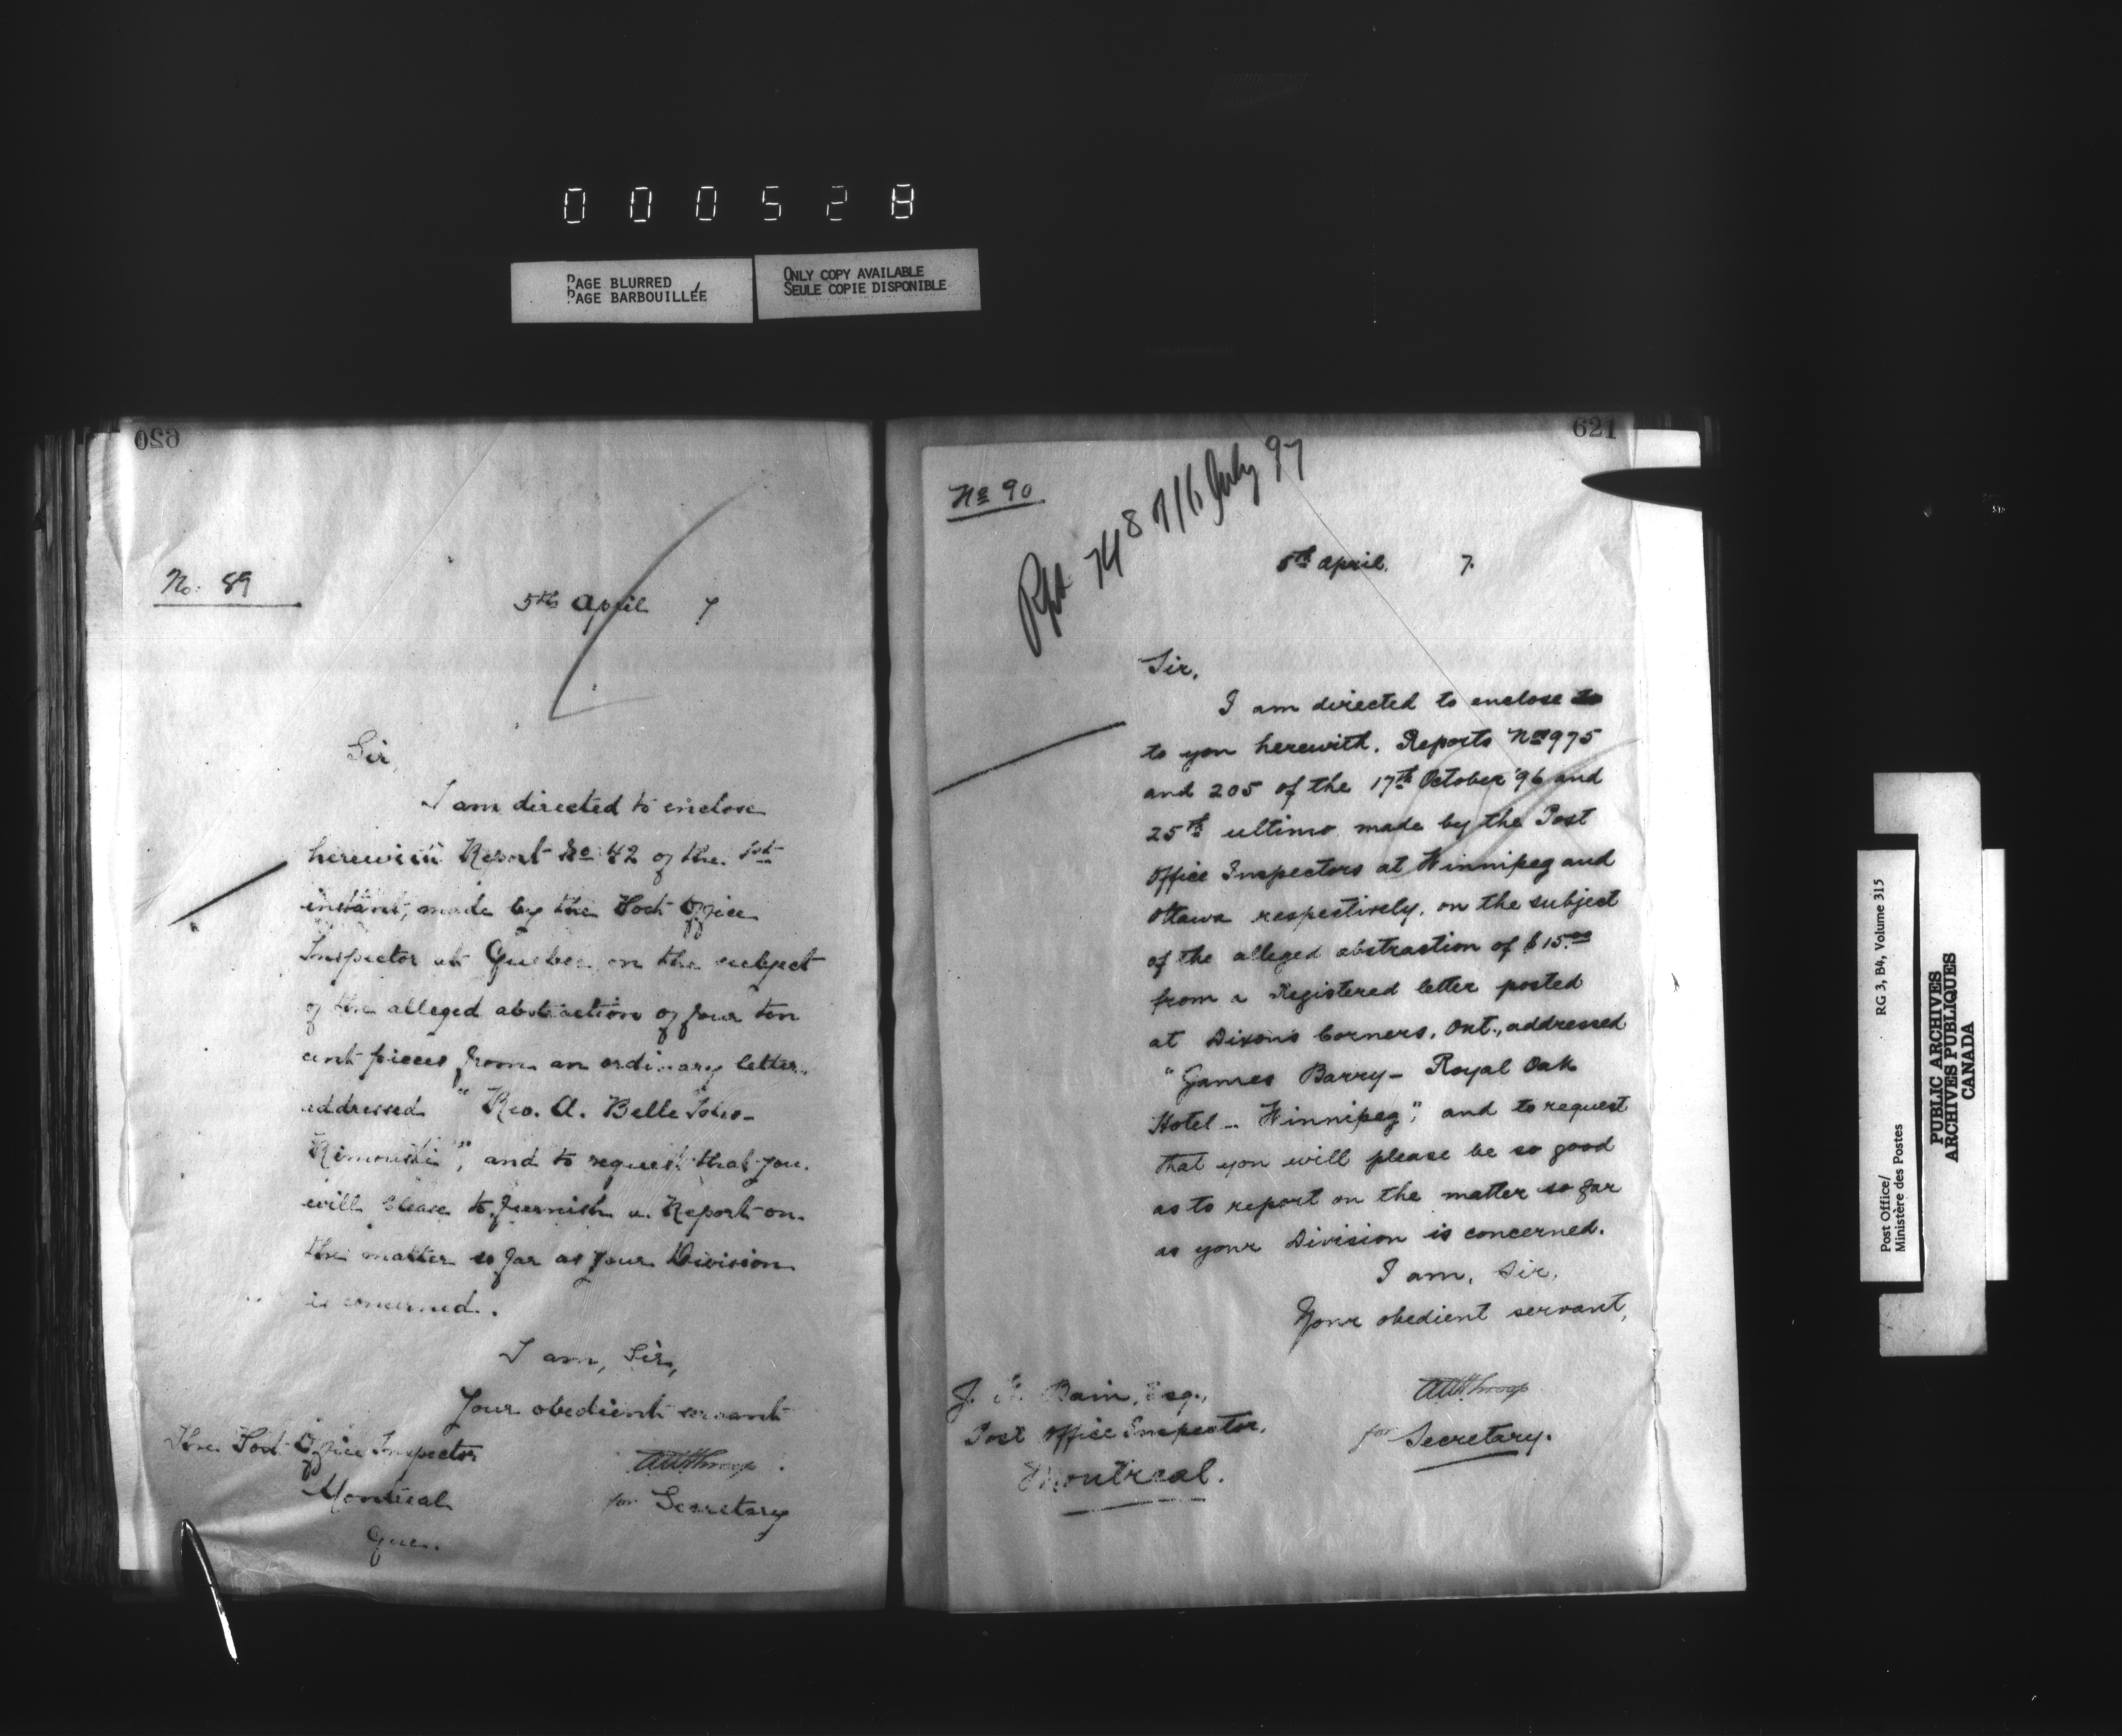 000528
PAGE BLURRED
PAGE BARBOUILLÉE
ONLY COPY AVAILABLE
SEULE COPIE DISPONIBLE
620
No: 89
5th April 7
Sir,
I am directed to enclose
herewith Report No 42 of the 1st
instant, made by the Post Office
Inspector at Quebec on the subject
of the alleged abstraction of four ten
cent pieces from an ordinary letter
addressed "Rev. A. Belle Isles-
Rimouski", and to request that you
will please to furnish a Report on
the matter so far as your Division
is concerned.
I am, Sir,
Your obedient servant
for Secretary
The Post Office Inspector
Montreal
Que.
621
No 90
Rpt 748 of 16 July 97
5th April. 7.
Sir,
I am directed to enclose to
to you herewith. Reports Nos 975
and 205 of the 17th October '96 and
25th ultimo made by the Post
Office Inspectors at Winnipeg and
Ottawa respectively, on the subject
of the alleged abstraction of $15.00
from a Registered letter posted
at Dixons Corners, Ont., addressed
"James Barry – Royal Oak
Hotel – Winnipeg", and to request
that you will please be so good
as to report on the matter so far
as your Division is concerned.
I am, Sir,
Your obedient servant,
for Secretary.
J. Bain, Esq.,
Post Office Inspector,
Montreal.
Post Office/
Ministère des Postes
RG 3, B4, Volume 315
PUBLIC ARCHIVES
ARCHIVES PUBLIQUES
CANADA